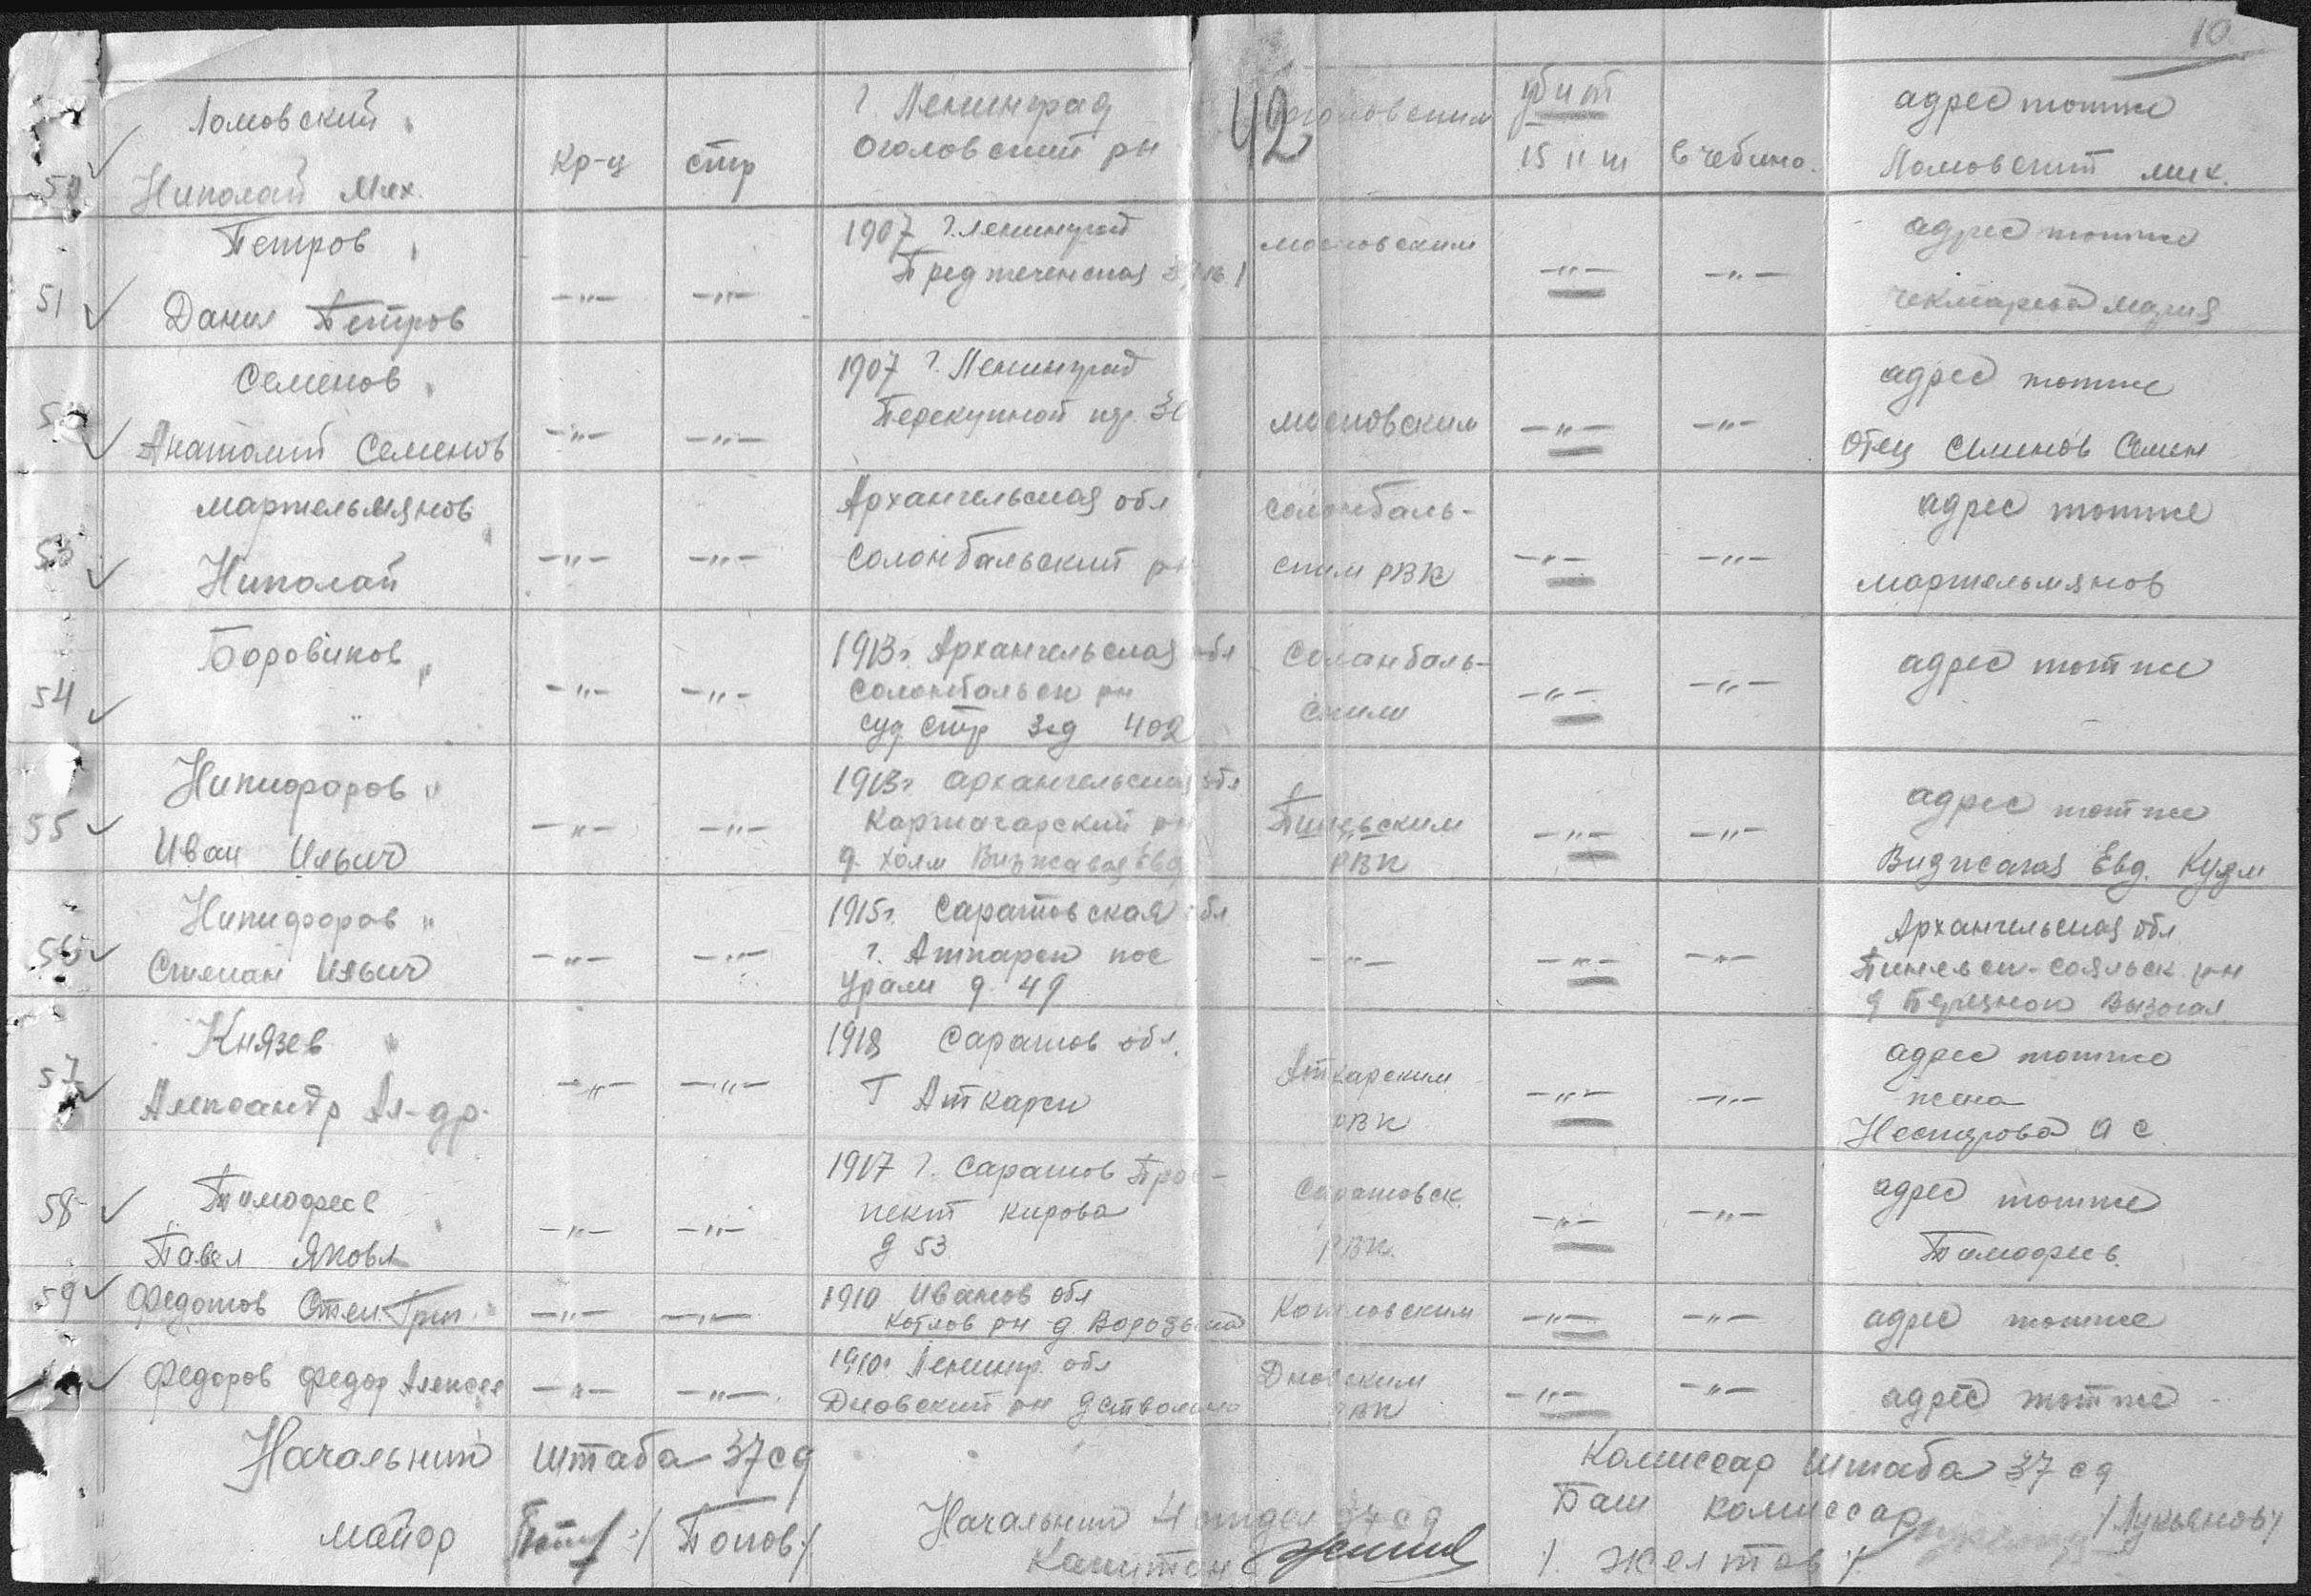 10
Ломовский
Николай Мих.
50
кр-ц
стр
г. Ленинград
Оголовский рн
42
убит
15 II
в чебино.
адрес тотже
Ломовский мих.
51
Петров
Данил Петров
—"—
—"—
1907 г. Ленинград
Предтеченская
московским
—"—
—"—
адрес тотже
Чекмарева Мария
Семенов
Анатолий Семенов
—"—
—"—
1907 г. Ленинград
Перекупной пр.
московским
—"—
—"—
адрес тотже
Отец Семенов Семен
53
мартельмянов
Николай
—"—
—"—
Архангельская обл
Солонбальский рн
солонбаль-
ским РВК
—"—
—"—
адрес тотже
мартельмянов
54
Боровиков
—"—
—"—
1913г. Архангельская обл
Солонбальск рн
суд стр зад 402
Соланбаль-
ским
—"—
—"—
адрес тотже
55
Никифоров
Иван Ильич
—"—
—"—
1913г. архангельская обл
Каргачарский рн
д. холм
Пиневским
РВК
—"—
—"—
адрес тотже
Евд. Кузм
56
Никифоров
Степан Ильич
—"—
—"—
1915г. Саратовская обл
г. Аткарск пос
Урали д. 49
—"—
—"—
—"—
Архангельская обл
рн
д
57
Князев
Александр Ал-др.
—"—
—"—
1918 Саратов обл.
Г Аткарск
Аткарским
РВК
—"—
—"—
адрес тотже
жена
Нестерова А С
58
Тимофеев
Павел Яковл
—"—
—"—
1917 г. Саратов Прос-
пект кирова
д 53
Саратовск
РВК
—"—
—"—
адрес тотже
Тимофеев
59
Федотов Степ. Григ.
—"—
—"—
1910 Иванов обл
Котлов рн д
Котловским
—"—
—"—
адрес тотже
Федоров Федор Алексее
—"—
—"—
1910г Ленингр. обл
Дновский рн д
Дновским
РВК
—"—
—"—
адрес тотже
Начальник штаба 37 сд
майор /Попов/
Начальник 4 отдел 37 сд
Капитан /Желтов/
Комиссар штаба 37 сд
Бат комиссар /Лукьянов/